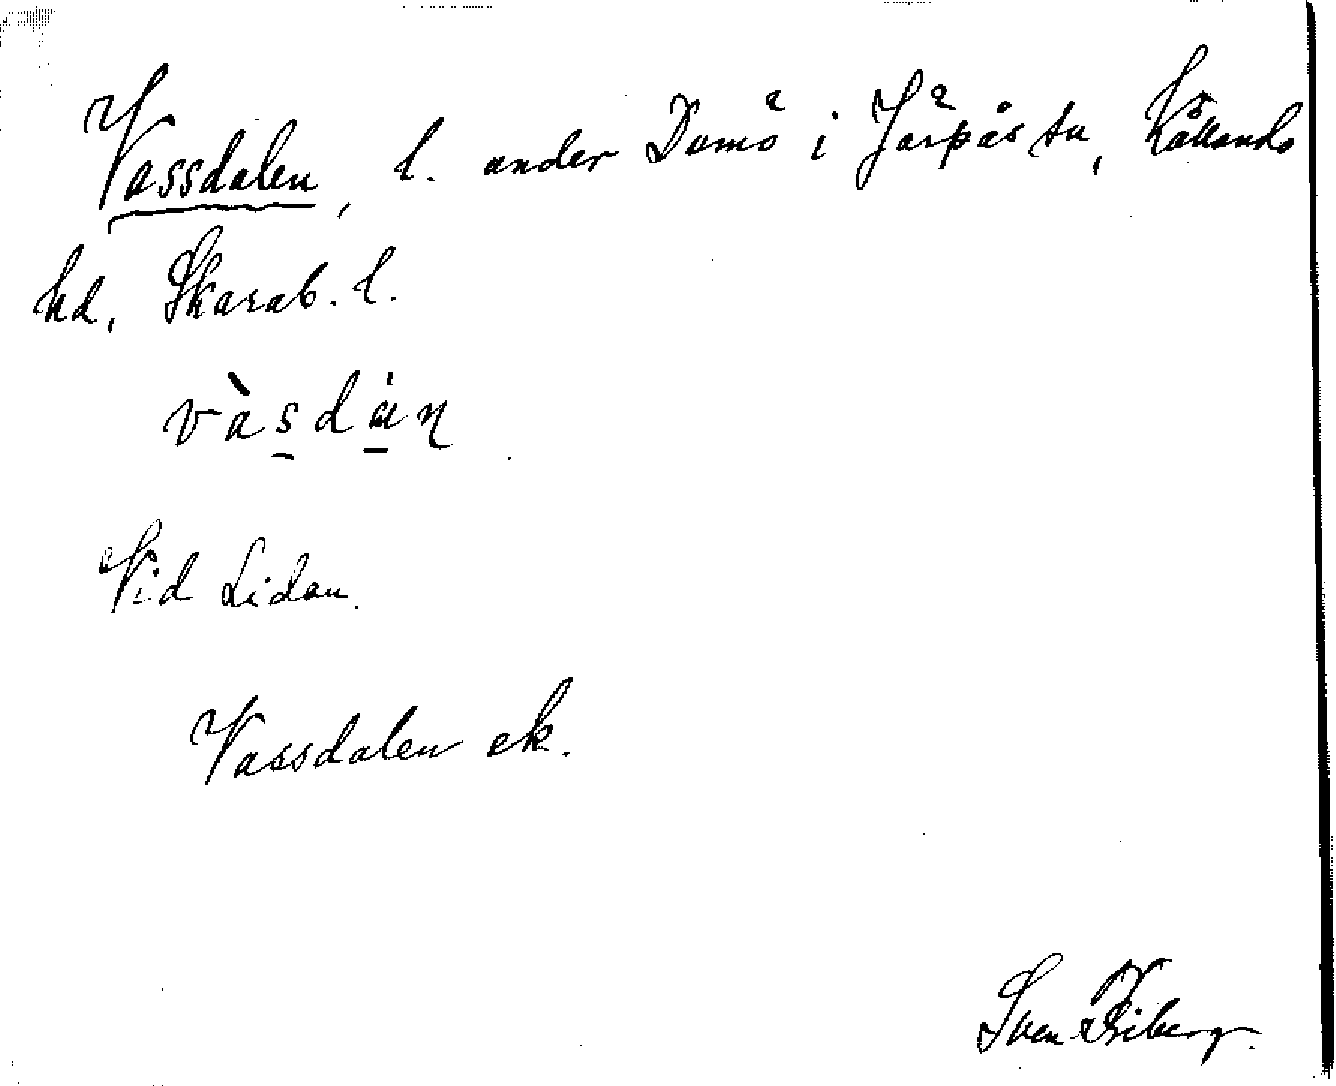 Vassdalen, l. under Damö i Järpås sn, Kållands
hd, Skarab. l.
vàsdán
Vid Lidan.
Vassdalen ek.
Sven Friberg.